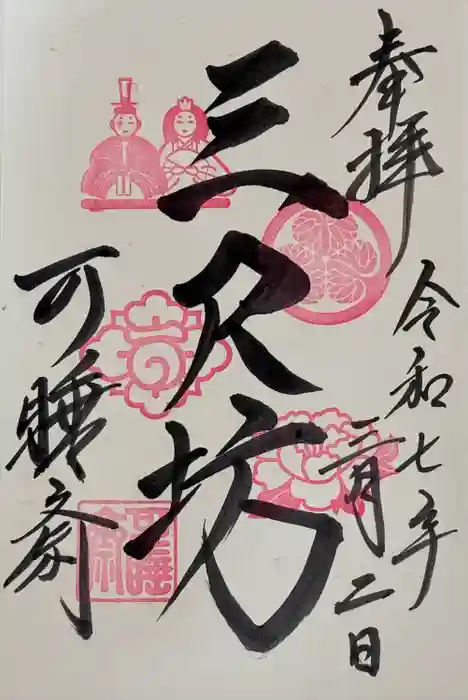 奉拝
令和七年
二月二日
三尺坊
可睡斎